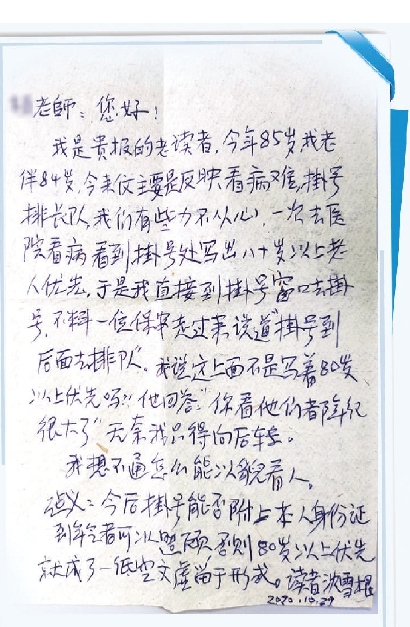 老師：您好！
我是貴报的老读者，今年85岁我老
伴84岁，今来仪主要是反映看病难，掛号
排长队，我们有些力不从心，一次去医
院看病看到掛号处写出八十岁以上老
人优先，于是我直接到掛号窗口去掛
号，不料一位保安走过来说道“掛号到
后面去排队”。我说这上面不是写着80岁
以上优先吗？”他回答“你看他们都年纪
很大了”无奈我只得向后转。
我想不通怎么能以貌看人。
建义：今后掛号能否附上本人身份证
到年令者可以照顾否则80岁以上优先
就成了一低空文虚留于形式。读者沈雪根
2020.10.29